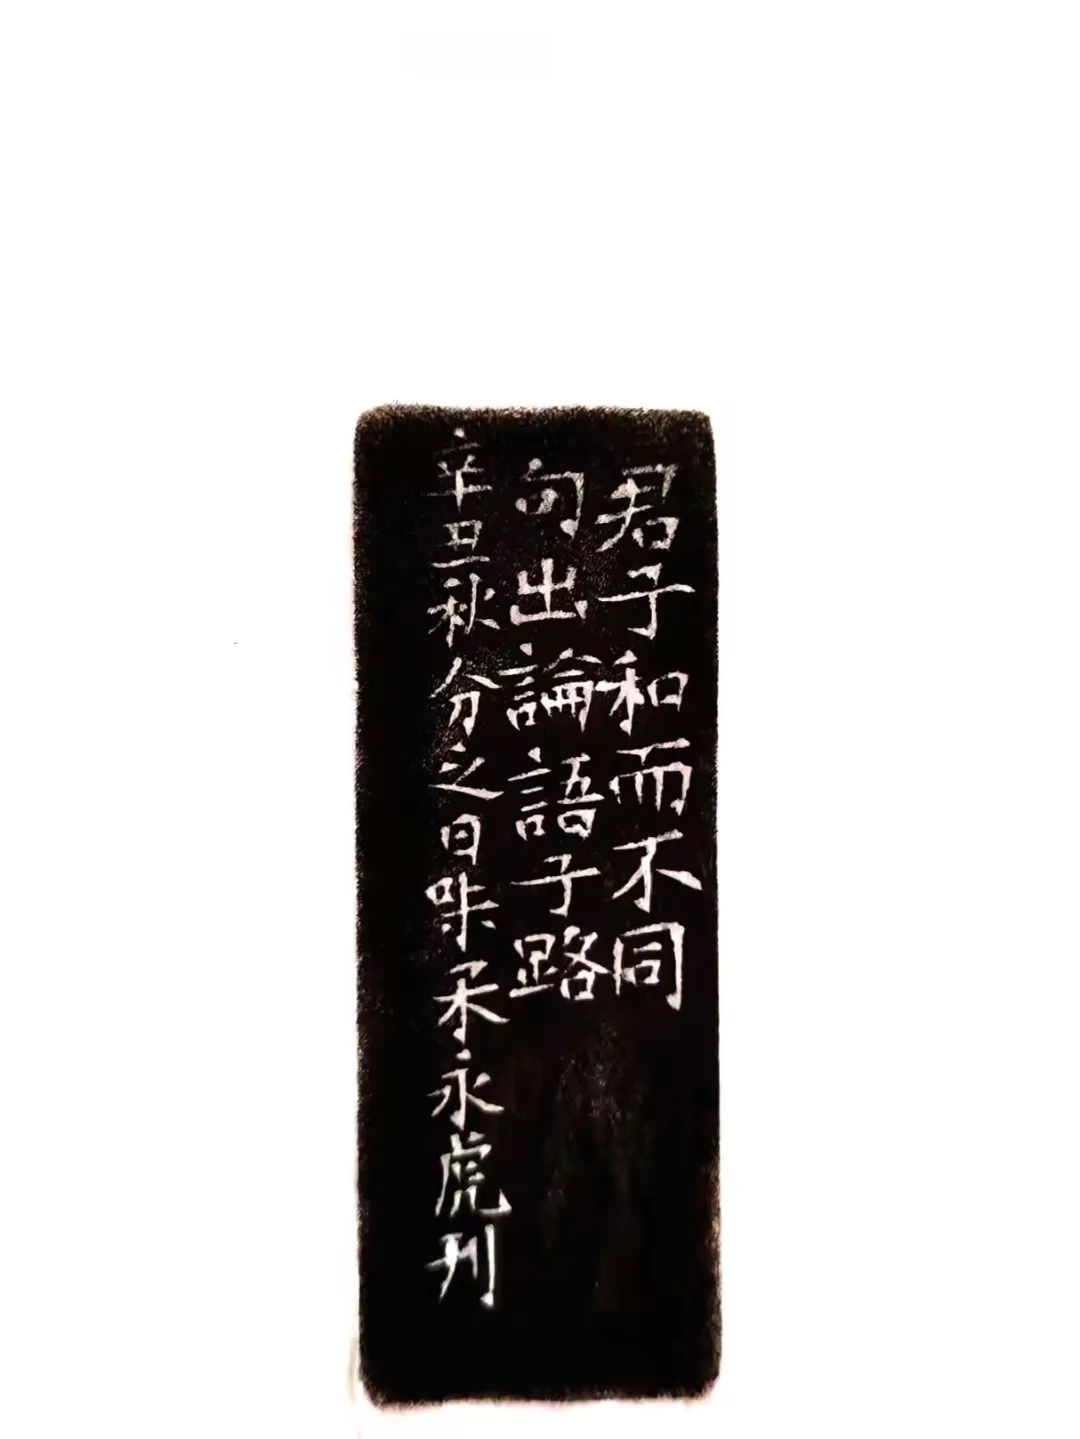 君子和而不同
句出論語子路
辛丑秋分之日味柔永虎刊